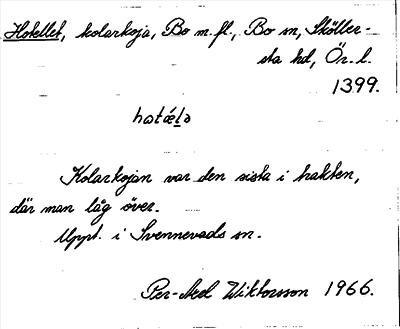 Hotellet, kolarkoja, Bo m.fl., Bo sn, Sköller-
sta hd, Ör. l.
1399.
hotǽlə
Kolarkojan var den sista i trakten,
där man låg över.
Uppt. i Svennevads sn.
Per-Axel Wiktorsson 1966.